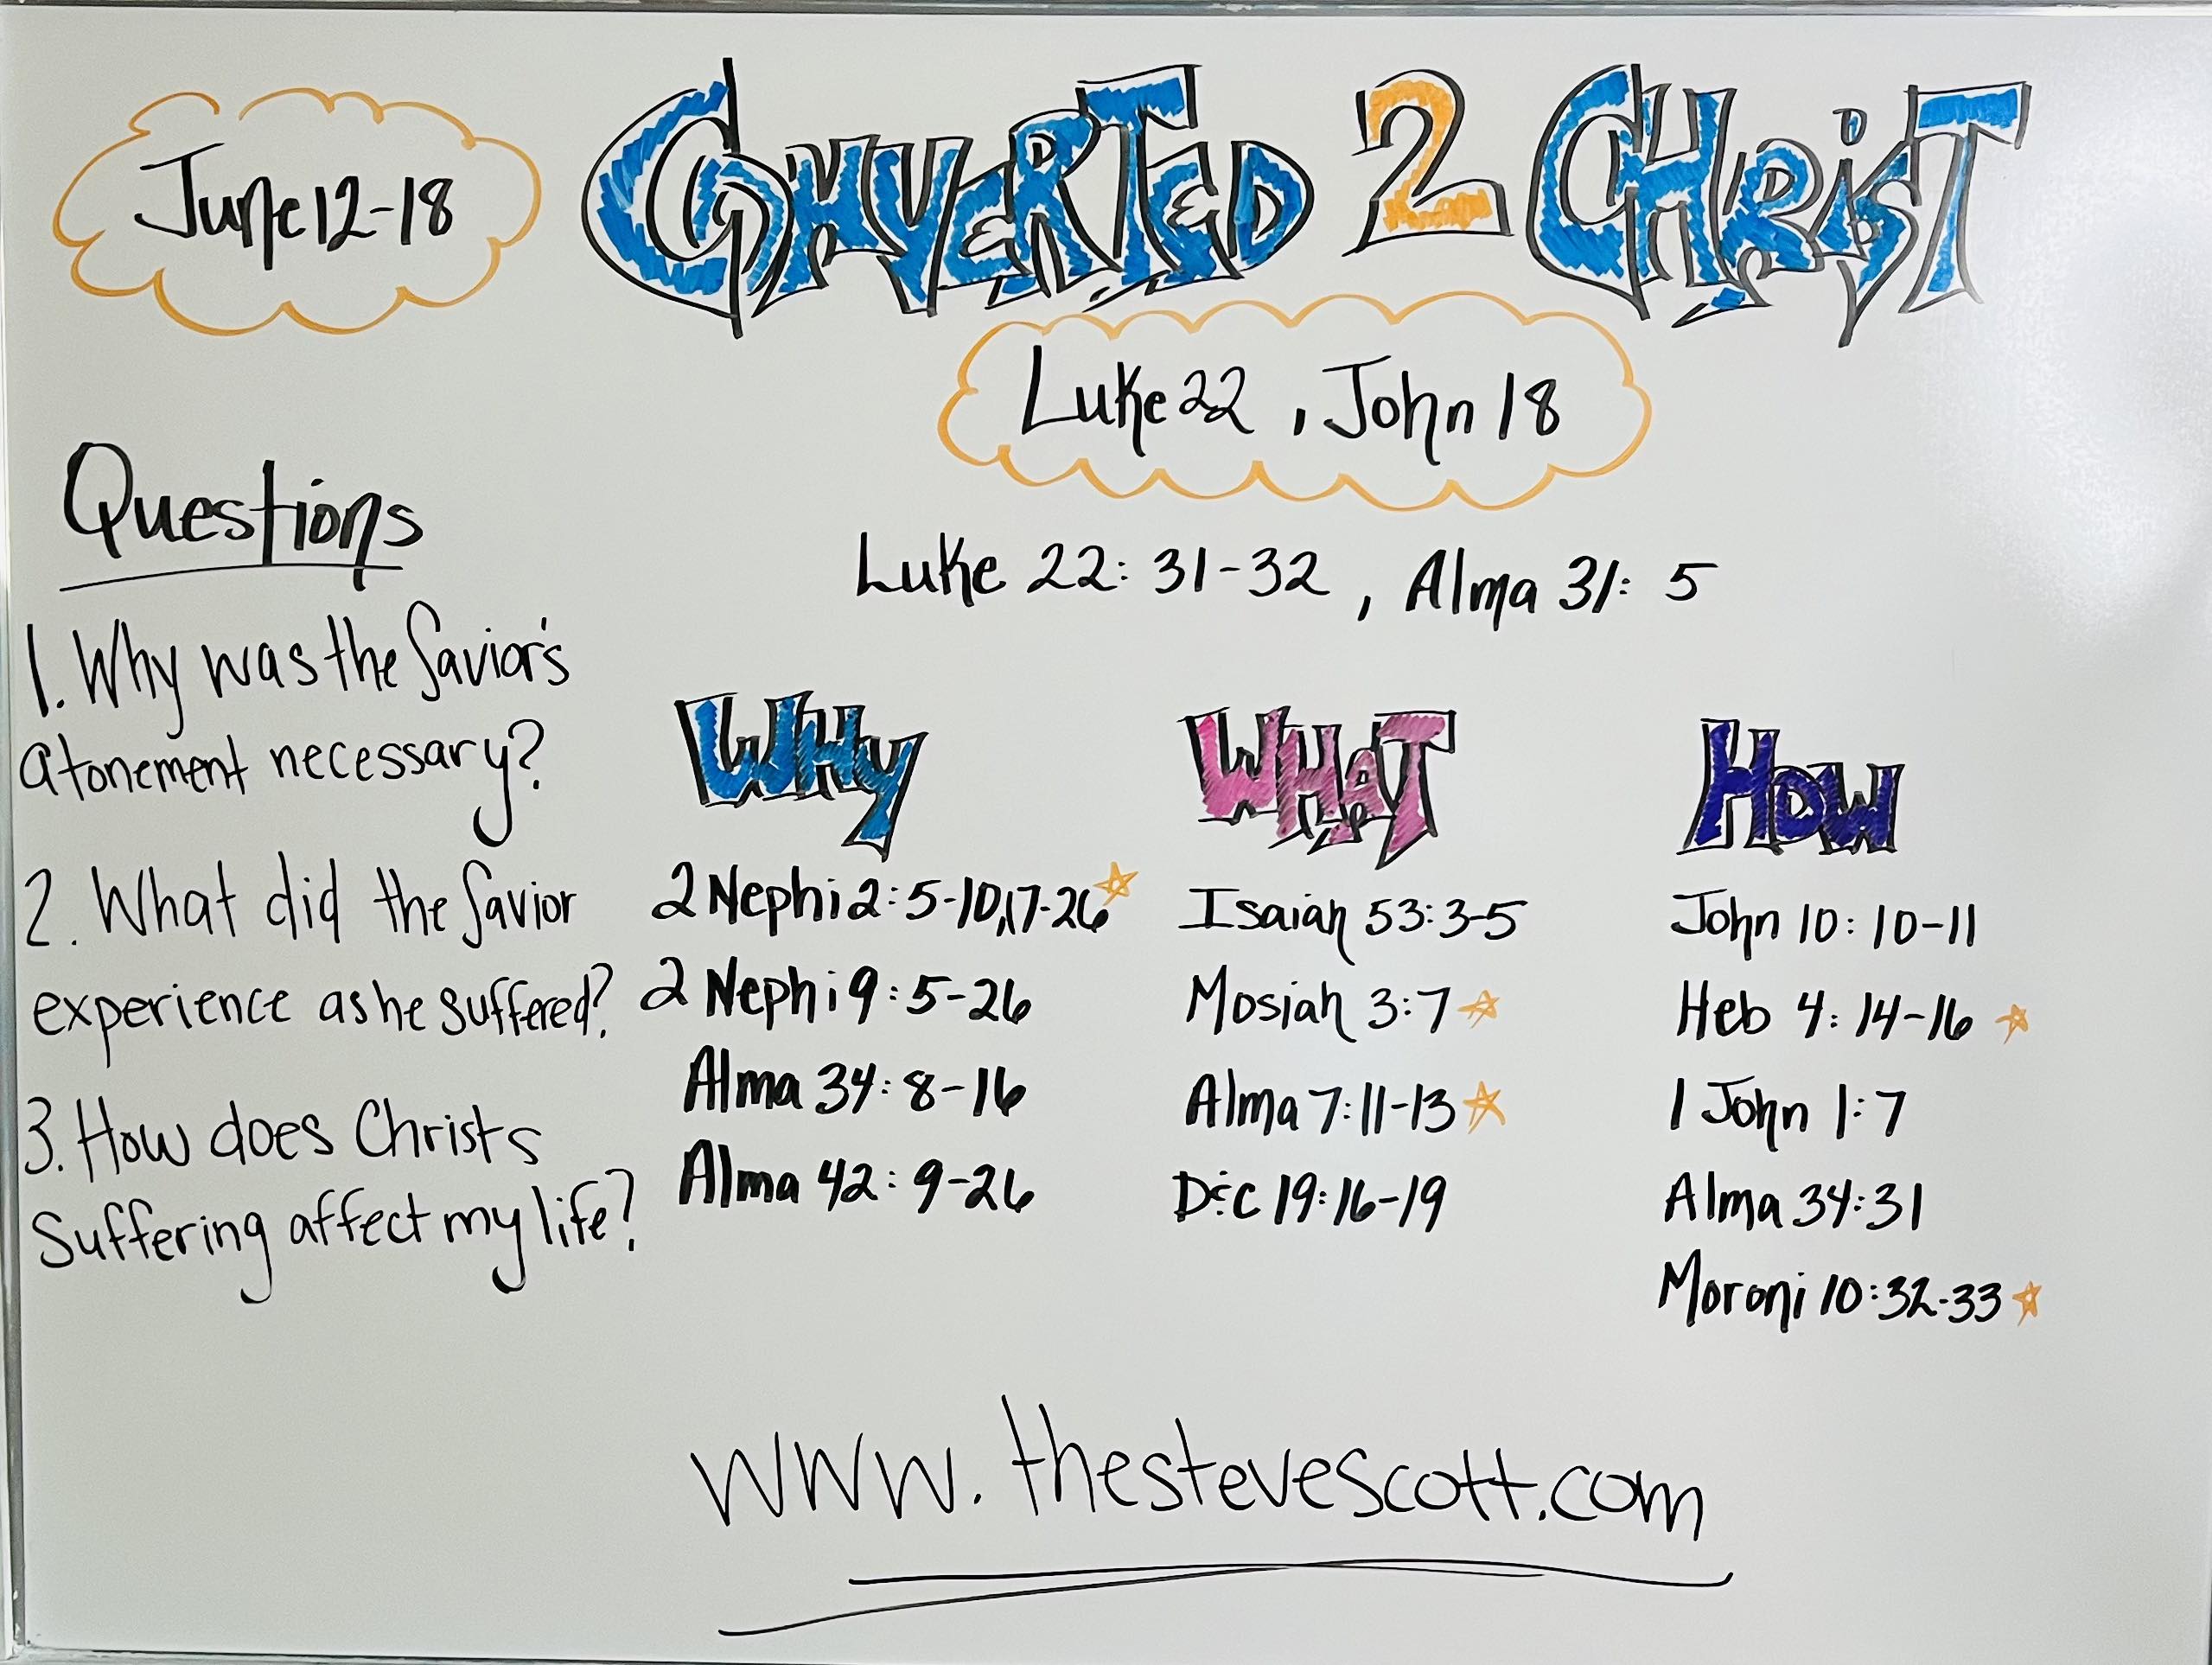 June 12-18
CONVERTED 2 CHRIST
Luke 22 , John 18
Luke 22: 31-32 , Alma 31: 5
Questions
1. Why was the Savior's
atonement necessary?
2. What did the Savior
experience as he suffered?
3. How does Christs
Suffering affect my life?
WHY
2 Nephi 2: 5-10,17-26
2 Nephi 9: 5-26
Alma 34: 8-16
Alma 42: 9-26
WHAT
Isaiah 53: 3-5
Mosiah 3:7
Alma 7:11-13
D&C 19:16-19
HOW
John 10: 10-11
Heb 4: 14-16
1 John 1:7
Alma 34:31
Moroni 10:32-33
www.thestevescott.com